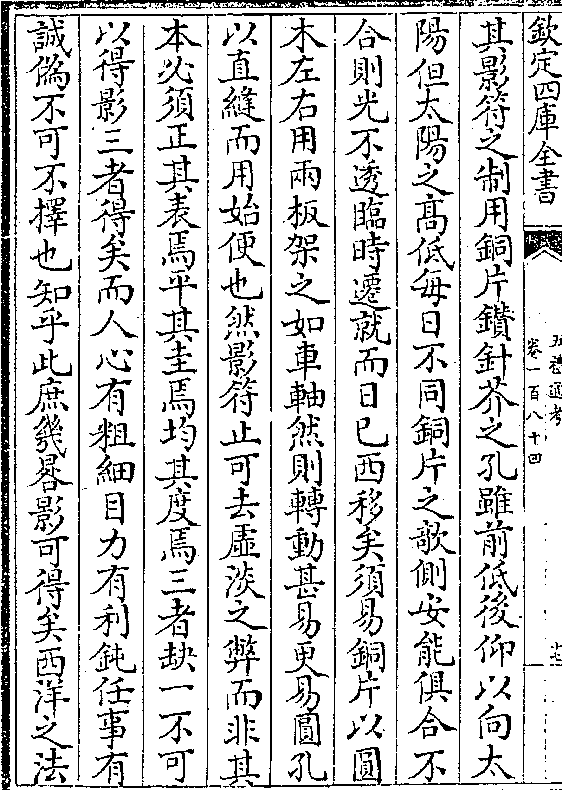 欽定四庫全書
五禮通考
卷一百八十四
十七
其影符之制用銅片鑚針芥之孔雖前低後仰以向太
陽但太陽之髙低每日不同銅片之欹側安能俱合不
合則光不透臨時遷就而日已西移矣須易銅片以圓
木左右用兩板架之如車軸然則轉動甚易更易圓孔
以直縫而用始便也然影符止可去虛淡之弊而非其
本必須正其表焉平其圭焉均其度焉三者缺一不可
以得影三者得矣而人心有粗細目力有利鈍任事有
誠偽不可不擇也知乎此庶幾晷影可得矣西洋之法